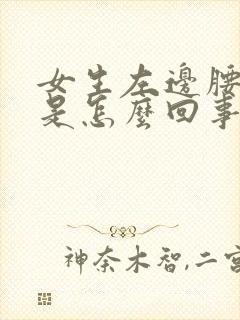 女生左邊腰
是怎麼回事
神奈木智,二宮